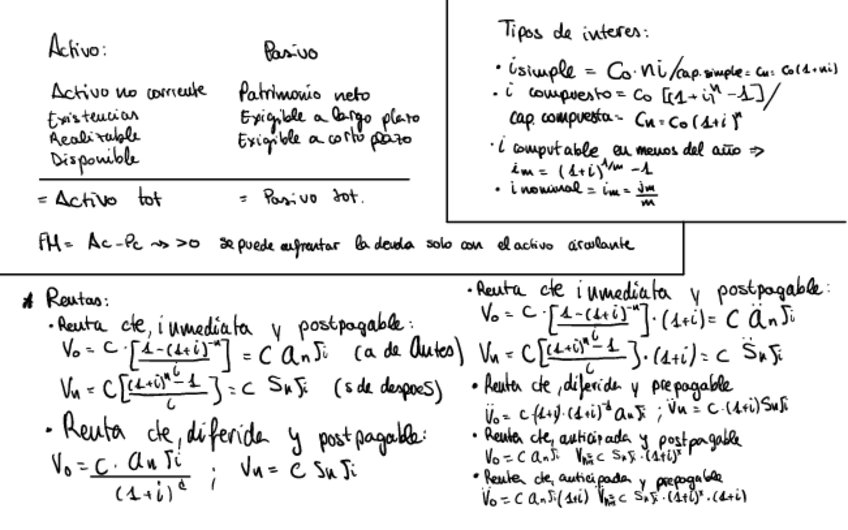 Activo:
Activo no corriente
Existencias
Realizable
Disponible
= Activo tot
Pasivo
Patrimonio neto
Exigible a largo plazo
Exigible a corto plazo
= Pasivo tot.
FM = Ac - Pc ~> >0 se puede enfrentar la deuda solo con el activo circulante
Tipos de interes:
• i simple = Co · ni / cap. simple = Cn = Co(1+ni)
• i compuesto = Co [(1+i)^n - 1] /
cap. compuesta = Cn = Co(1+i)^n
• i computable en menos del año ⇒
im = (1+i)^1/m - 1
• i nominal = im = jm/m
* Rentas:
• Renta cte, inmediata y postpagable:
Vo = C · [1-(1+i)^-n / i] = C an⌉i (a de Antes)
Vn = C [(1+i)^n - 1 / i] = C Sn⌉i (s de despoeS)
• Renta cte, diferida y postpagable:
Vo = C · an⌉i / (1+i)^d ; Vn = C Sn⌉i
• Renta cte inmediata y postpagable:
Vo = C · [1-(1+i)^-n / i] · (1+i) = C än⌉i
Vn = C [(1+i)^n - 1 / i] · (1+i) = C S̈n⌉i
• Renta cte, diferida y prepagable
V̈o = C (1+i) · (1+i)^-d an⌉i ; V̈n = C · (1+i) Sn⌉i
• Renta cte, anticipada y postpagable
Vo = C an⌉i C Sn⌉i · (1+i)^x
• Renta cte, anticipada y prepagable
V̈o = C an⌉i (1+i) C Sn⌉i · (1+i)^x · (1+i)